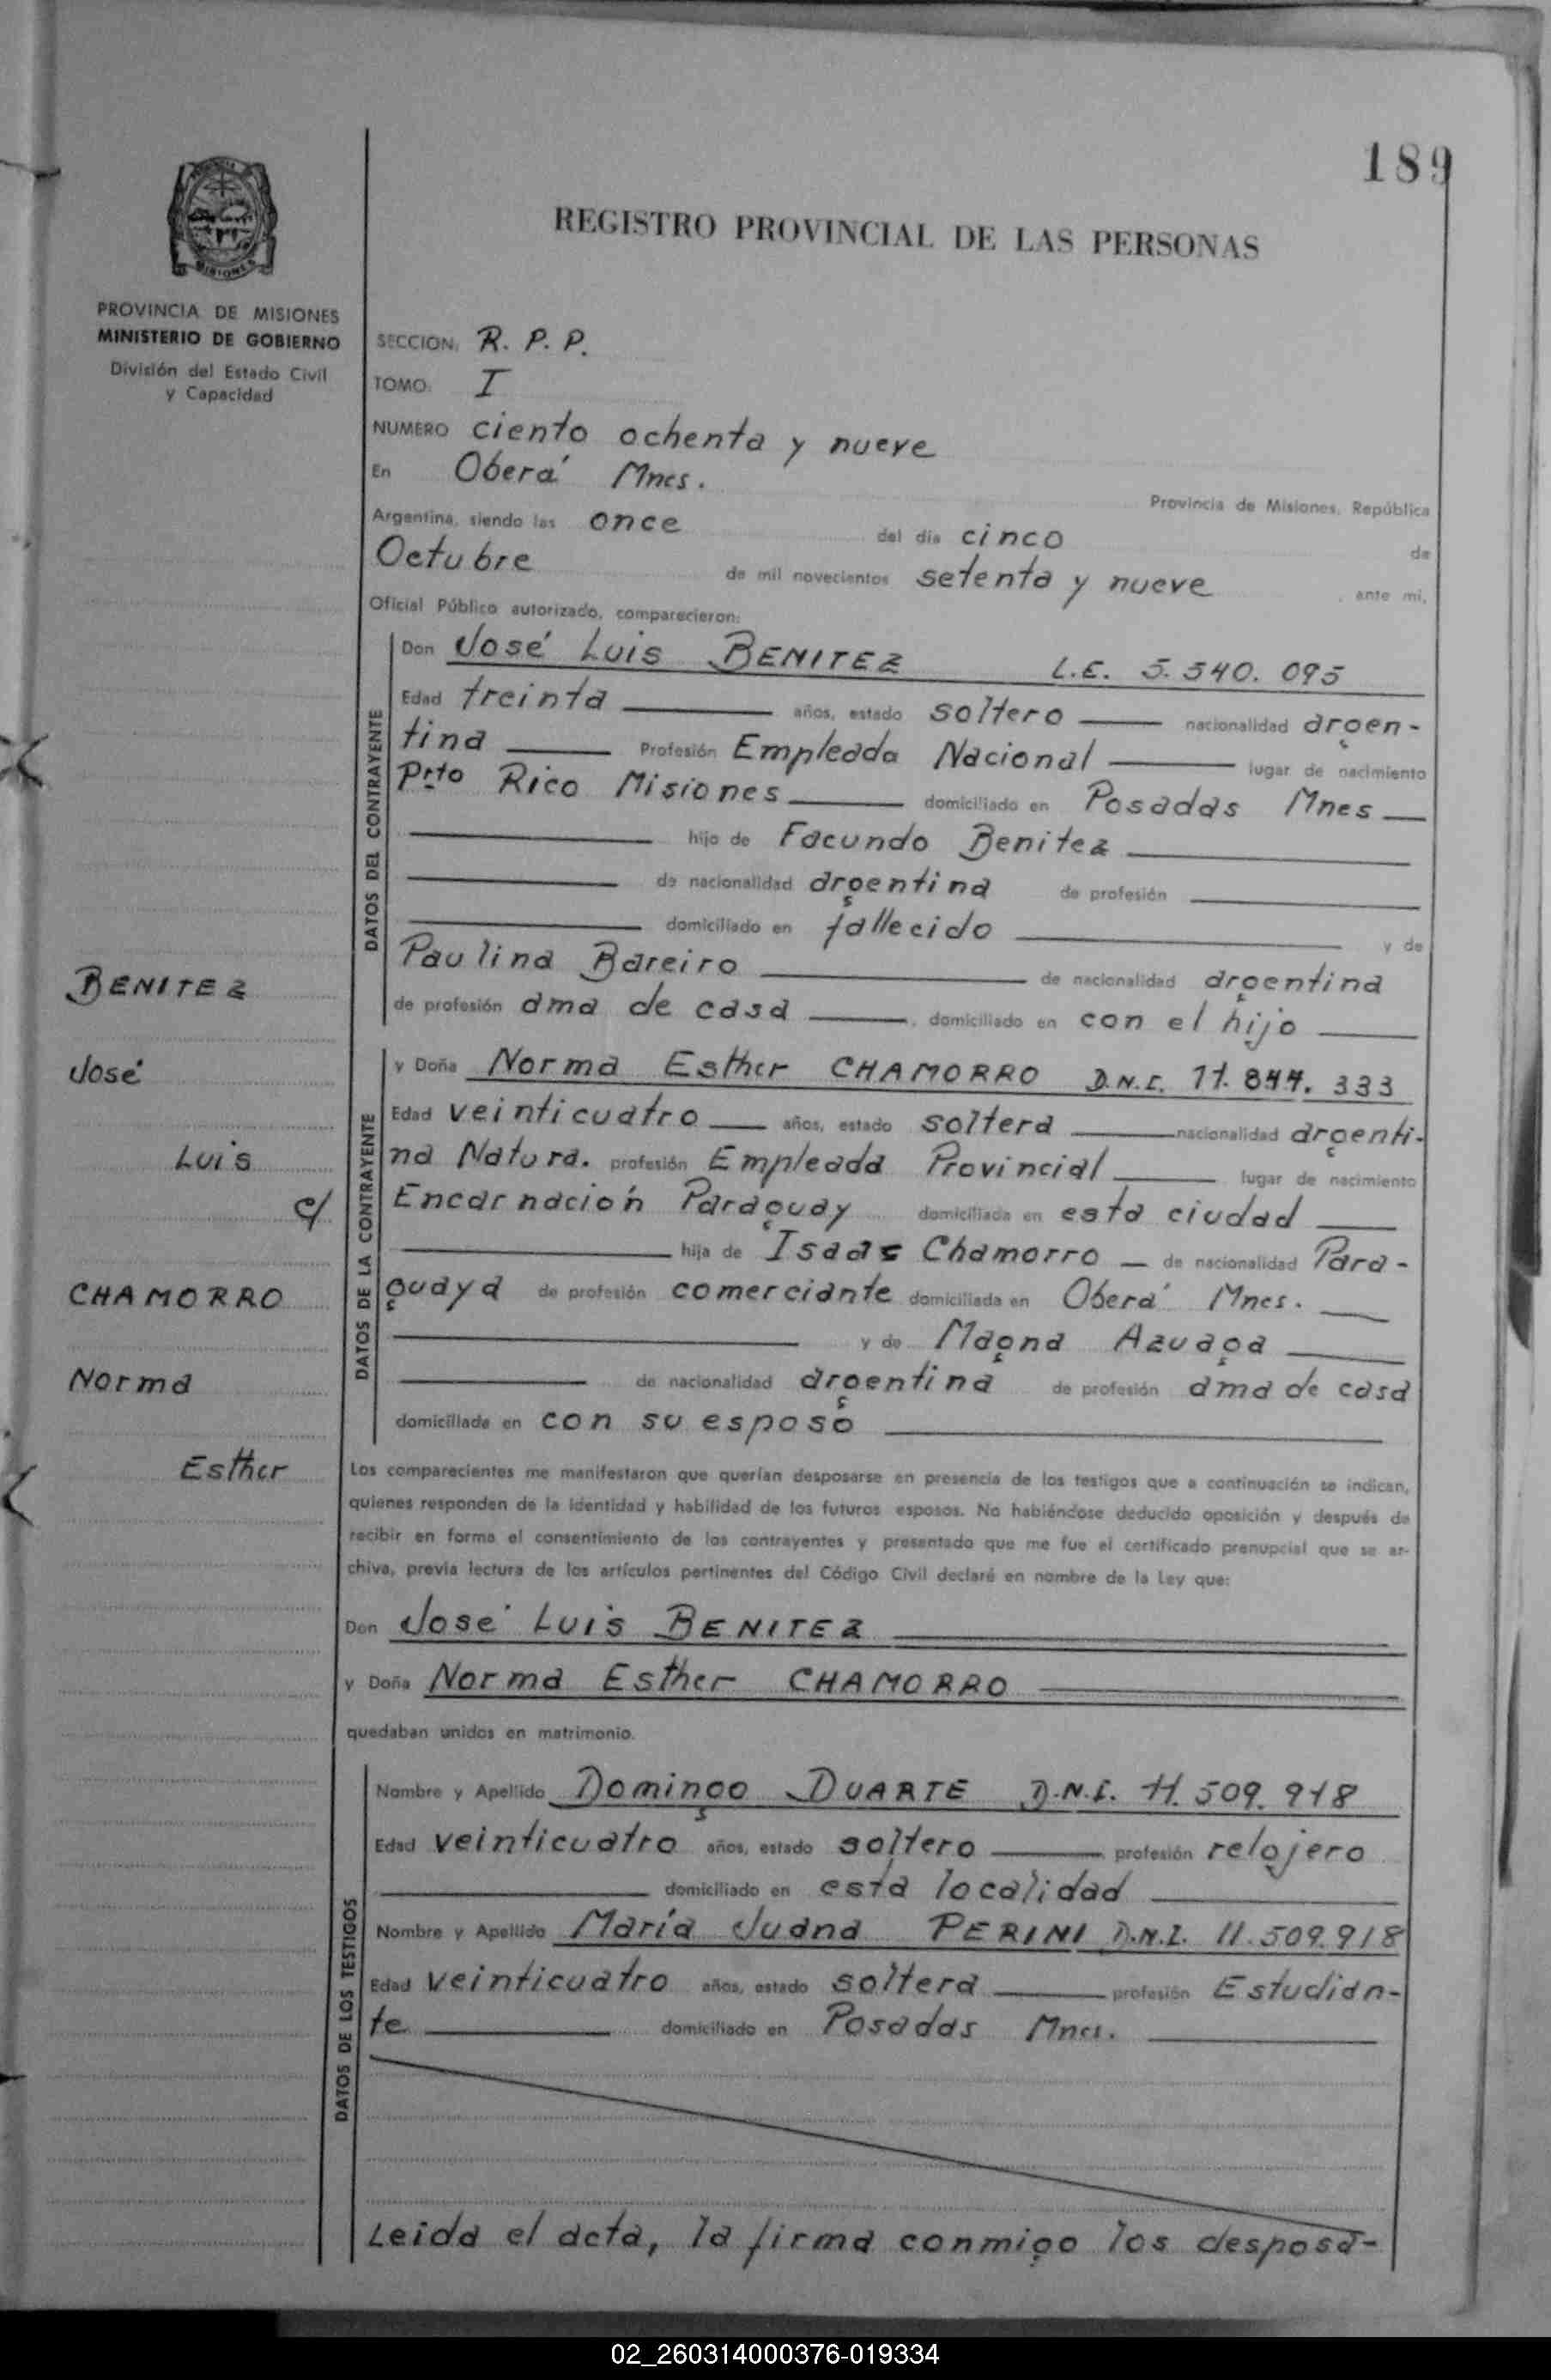 189
REGISTRO PROVINCIAL DE LAS PERSONAS
MISIONES
PROVINCIA DE MISIONES
MINISTERIO DE GOBIERNO
División del Estado Civil
y Capacidad
SECCION, R. P. P.
TOMO. I
NUMERO ciento ochenta y nueve
En Oberá Mnes.
Provincia de Misiones, República
Argentina, siendo las once del día cinco de
Octubre de mil novecientos setenta y nueve ante mi,
Oficial Público autorizado, comparecieron:
DATOS DEL CONTRAYENTE
Don José Luis BENITEZ L.E. 5.540.095
Edad treinta años, estado soltero nacionalidad argen-
tina Profesión Empleada Nacional lugar de nacimiento
Prto Rico Misiones domiciliado en Posadas Mnes
hijo de Facundo Benitez
de nacionalidad argentina de profesión
domiciliado en fallecido y de
Paulina Bareiro de nacionalidad argentina
de profesión ama de casa, domiciliado en con el hijo
BENITEZ
José
Luis
c/
CHAMORRO
Norma
Esther
DATOS DE LA CONTRAYENTE
y Doña Norma Esther CHAMORRO D.N.I. 11.844.333
Edad veinticuatro años, estado soltera nacionalidad argenti-
na Natura. profesión Empleada Provincial lugar de nacimiento
Encarnación Paraguay domiciliada en esta ciudad
hija de Isaac Chamorro de nacionalidad Para-
guaya de profesión comerciante domiciliada en Oberá Mnes.
y de Magna Azuaga
de nacionalidad argentina de profesión ama de casa
domiciliada en con su esposo
Los comparecientes me manifestaron que querían desposarse en presencia de los testigos que a continuación se indican,
quienes responden de la identidad y habilidad de los futuros esposos. No habiéndose deducido oposición y después de
recibir en forma el consentimiento de los contrayentes y presentado que me fue el certificado prenupcial que se ar-
chiva, previa lectura de los artículos pertinentes del Código Civil declaré en nombre de la Ley que:
Don José Luis BENITEZ
y Doña Norma Esther CHAMORRO
quedaban unidos en matrimonio.
DATOS DE LOS TESTIGOS
Nombre y Apellido Domingo DUARTE D.N.I. 11.509.918
Edad veinticuatro años, estado soltero profesión relojero
domiciliado en esta localidad
Nombre y Apellido María Juana PERINI D.N.I. 11.509.918
Edad veinticuatro años, estado soltera profesión Estudian-
te domiciliado en Posadas Mnes.
Leida el acta, la firma conmigo los desposa-
02_260314000376-019334